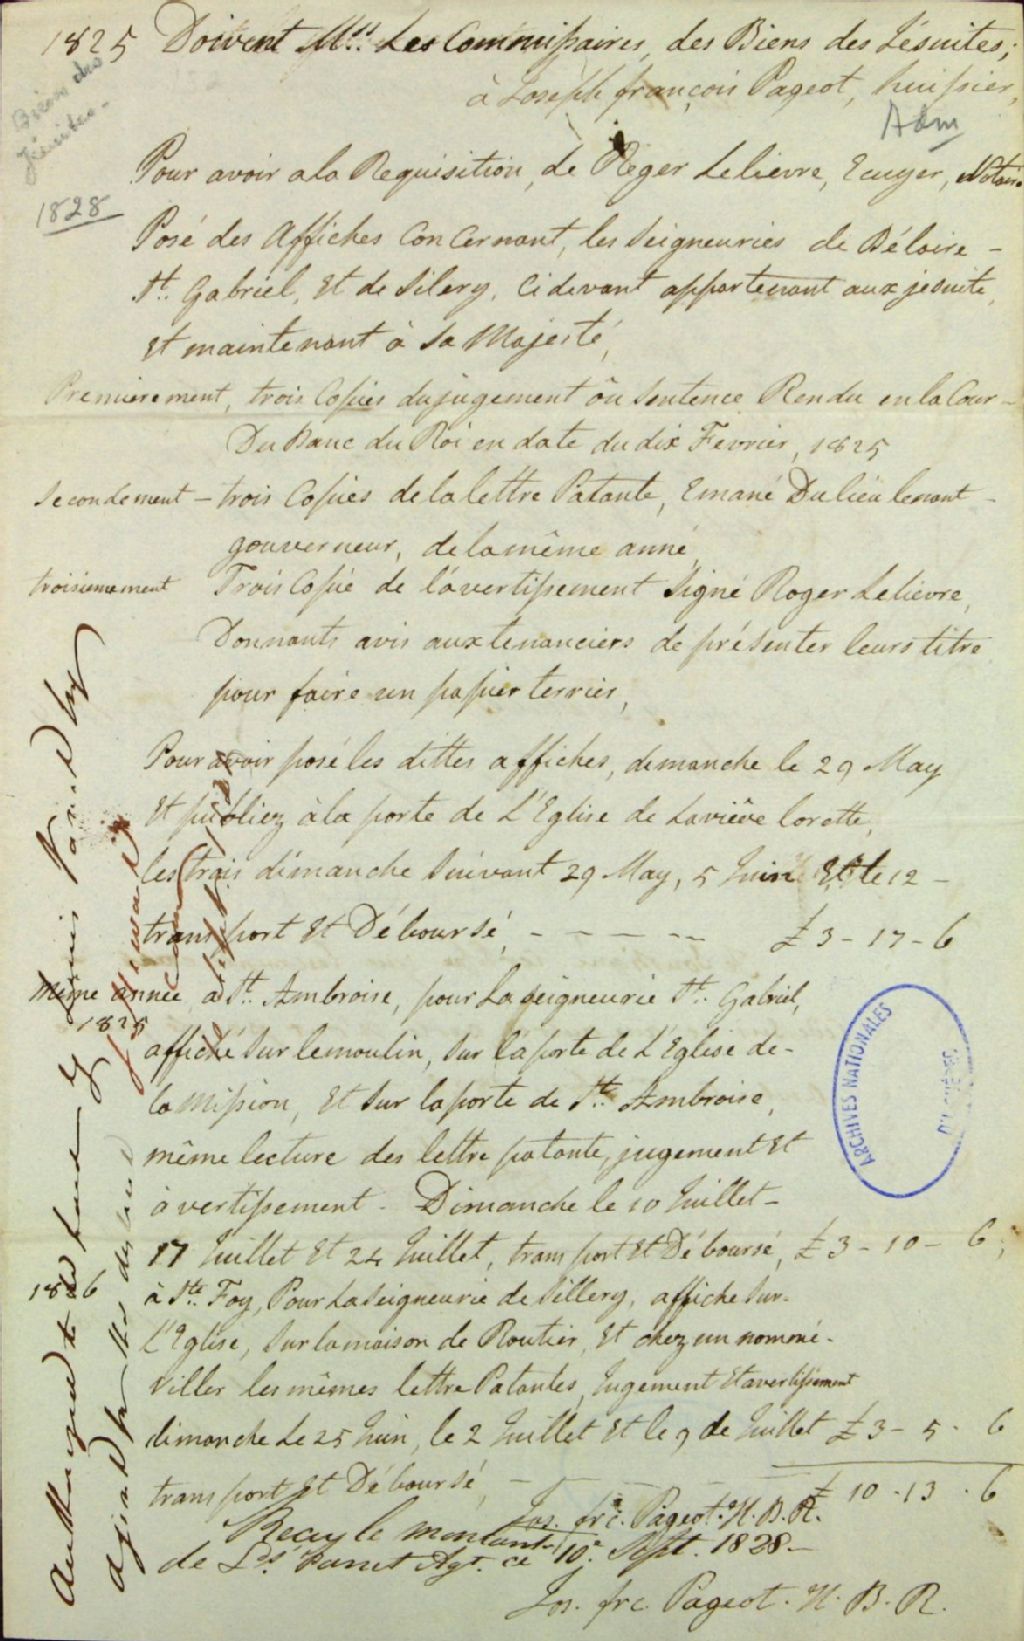 1825 Doivent Mrs. Les Commissaires, des Biens des Jésuites;
à Joseph françois Pageot, huissier,
Biens des
Jésuites.
Adm
Pour avoir a la Requisition, de Roger Lelievre, Ecuyer, Notaire
1828
Posé des Affiches Concernant, les Seigneuries de Béloire -
St. Gabriel, et de Silery, Ci devant appartenant aux jesuite,
et maintenant à Sa Majesté,
Premierement, trois Copies du jugement ou Sentence Rendu en la Cour -
Du Banc du Roi en date du dix Fevrier, 1825
Secondement - trois Copies de la lettre Patante, Emané Du lieutenant -
gouverneur, de la même anné,
troisiemement Trois Copie de l'avertissement Signé Roger Lelievre,
Donnants avis aux tenanciers de présenter leurs titre
pour faire un papier terrier,
Pour avoir posé les dittes affiches, dimanche le 29 May
Et publiez à la porte de L'Eglise de Lavieve lorette,
les trois dimanche Suivant 29 May, 5 Juin Et le 12 -
transport Et Déboursé, - - - - - £ 3 - 17 - 6
Même année, a St. Ambroise, pour La Seigneurie St. Gabriel,
1825
affiché Sur le moulin, Sur la porte de L'Eglise de -
la Mission, Et Sur la porte de St. Ambroise,
même lecture des lettre patante, jugement Et
avertissement - Dimanche le 10 Juillet -
17 Juillet Et 24 Juillet, transport Et Déboursé, £ 3 - 10 - 6;
1826 à Ste. Foy, Pour La Seigneurie de Sillery, affiche Sur -
L'Eglise, Sur la maison de Routier, Et chez un nommé -
Viller les mêmes lettre Patantes, Jugement Et avertissement
dimanche Le 25 Juin, le 2 Juillet Et le 9 de Juillet £ 3 - 5 - 6
transport Et Déboursé, - - - - £ 10 - 13 - 6
Jos. frc. Pageot. H. B. R.
Reçu le montant
de Ls. Panet Agt. ce 10e. Sept. 1828 -
Jos. frc. Pageot. H. B. R.
Louis Panet
ARCHIVES NATIONALES
DU QUÉBEC